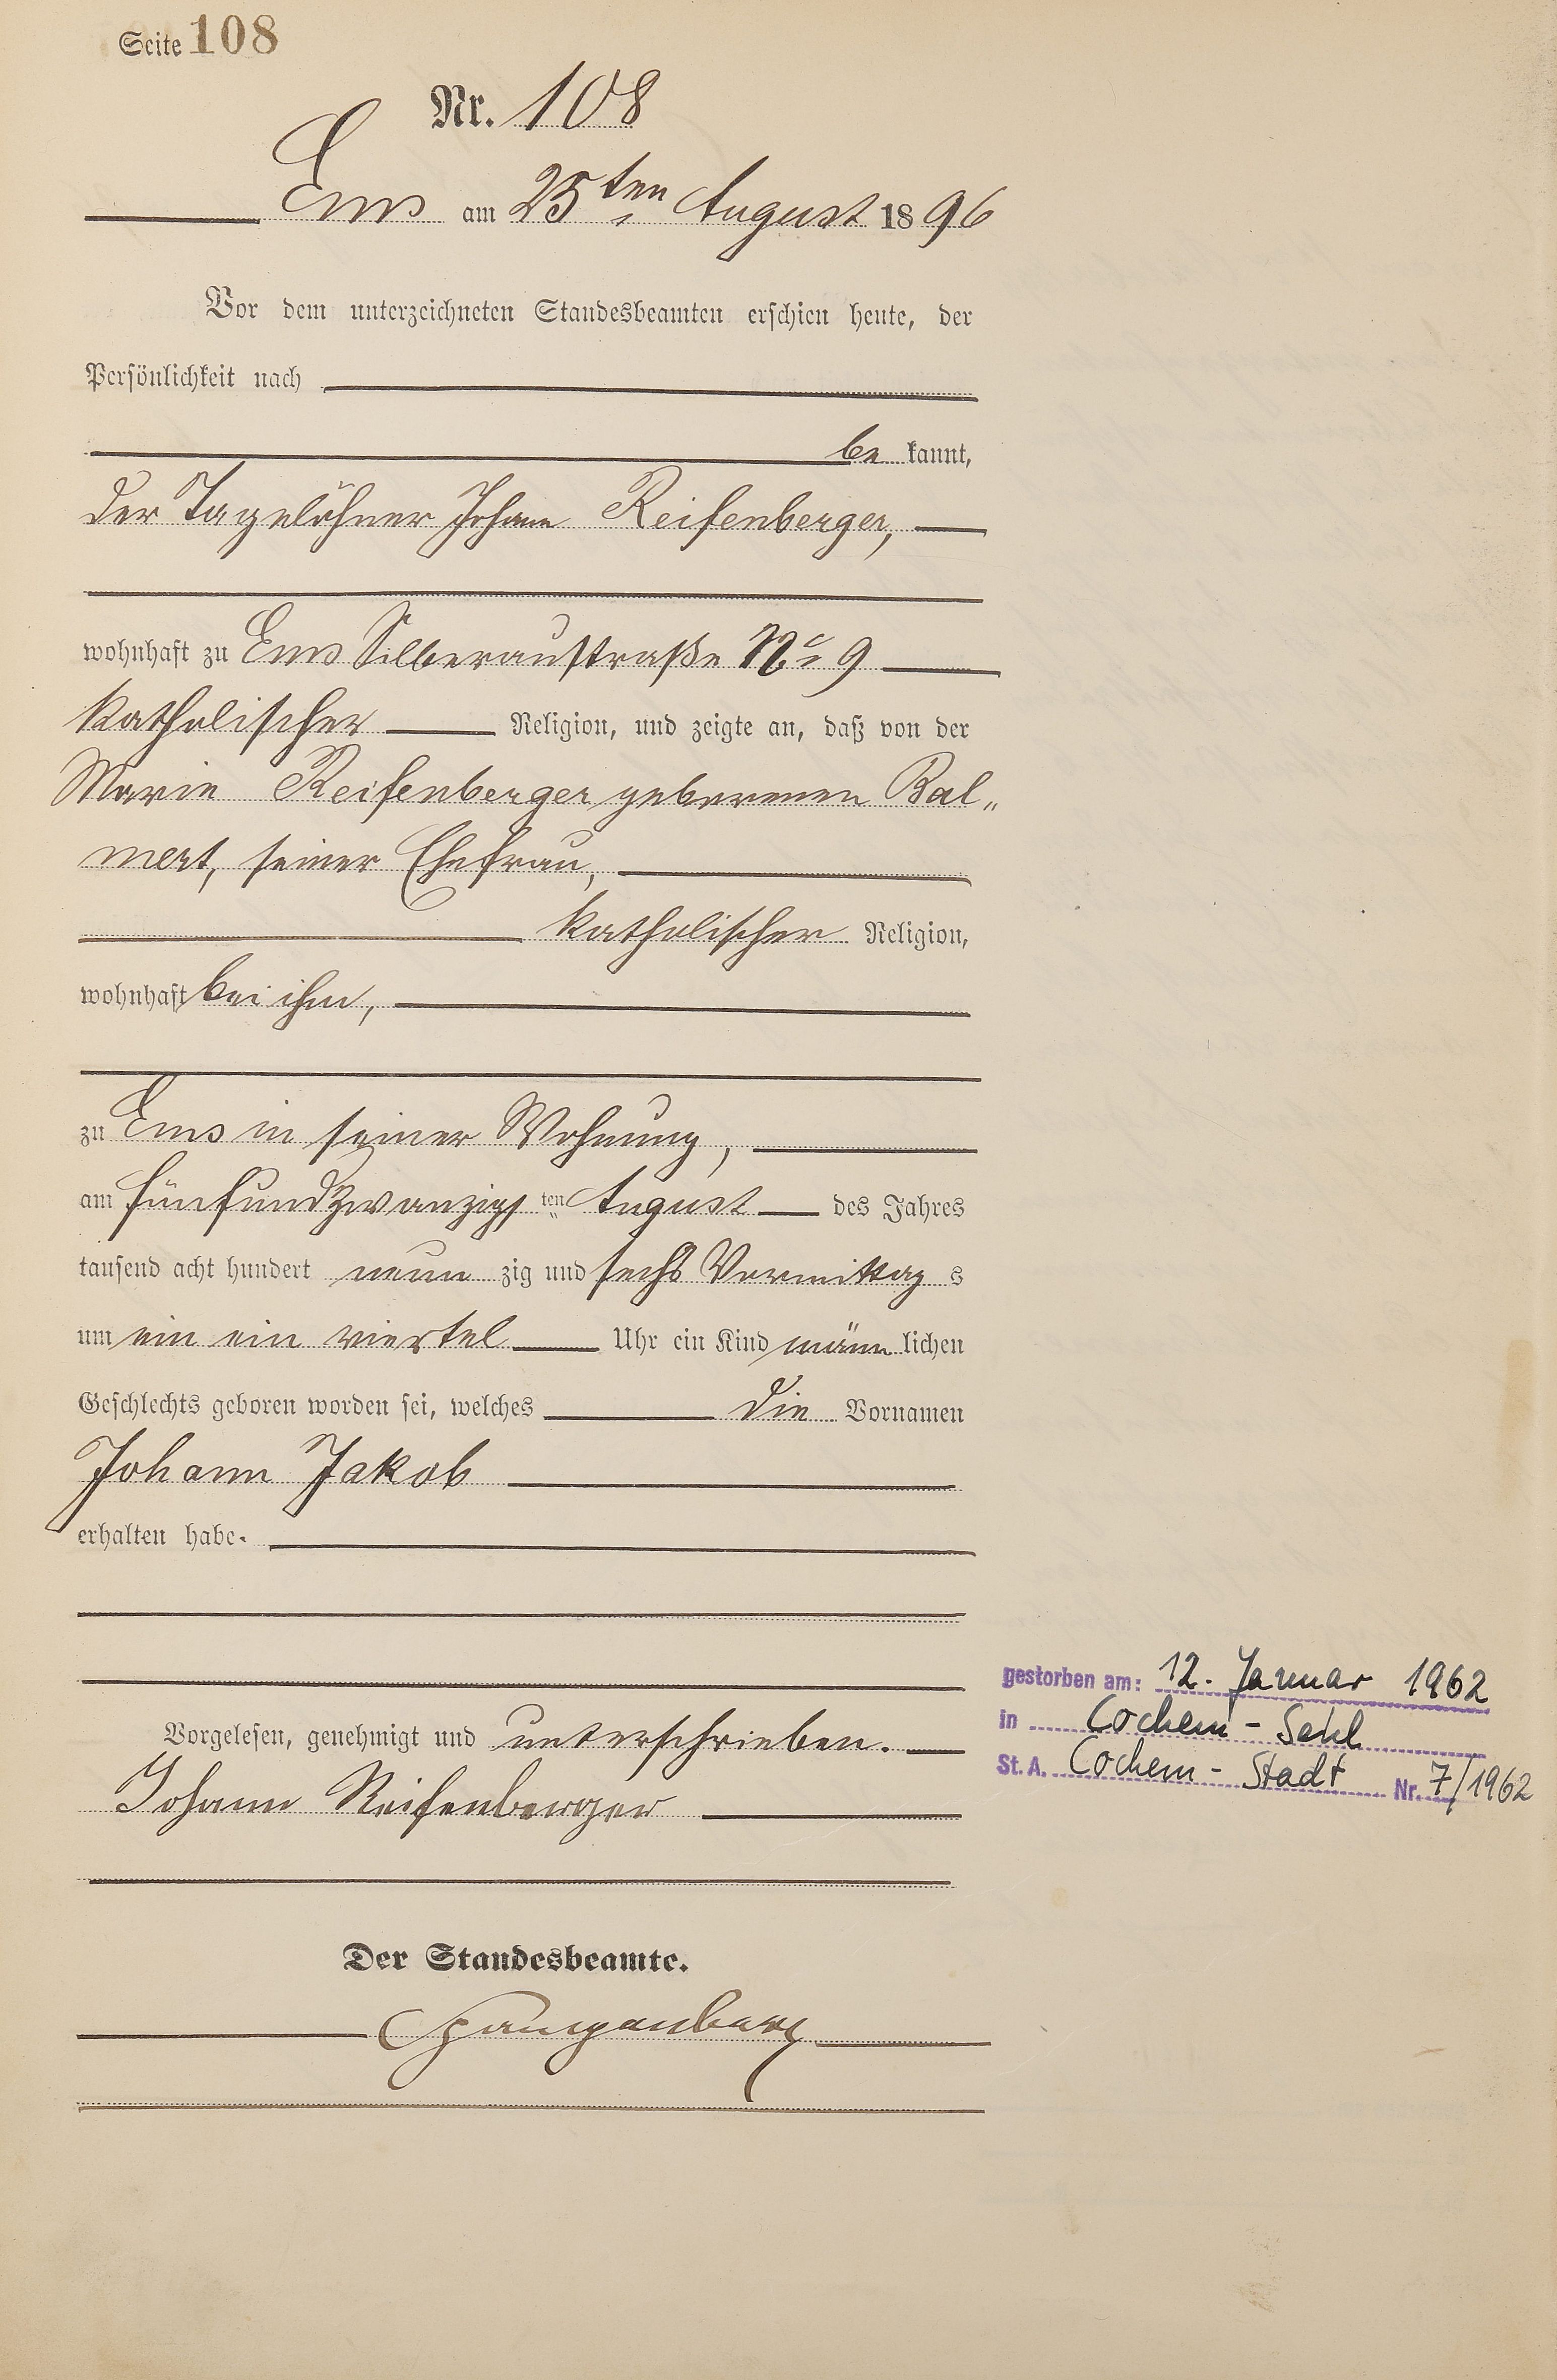 Seite 108
Nr. 108
Ems am 25ten August 1896
Vor dem unterzeichneten Standesbeamten erschien heute, der
Persönlichkeit nach
be kannt,
der Tagelöhner Johann Reifenberger,
wohnhaft zu Ems Silberaustraße No 9
katholischer Religion, und zeigte an, daß von der
Marie Reifenberger geborenen Bal„
mert, seiner Ehefrau,
katholischer Religion,
wohnhaft bei ihm,
zu Ems in seiner Wohnung,
am fünfundzwanzigsten August des Jahres
tausend acht hundert neun zig und sechs Vormittag s
um ein ein viertel Uhr ein Kind männ lichen
Geschlechts geboren worden sei, welches die Vornamen
Johann Jakob
erhalten habe.
gestorben am: 12. Januar 1962
in Cochem - Sehl
St. A. Cochem - Stadt Nr. 7/1962
Vorgelesen, genehmigt und unterschrieben.
Johann Reifenberger
Der Standesbeamte.
Spangenberg